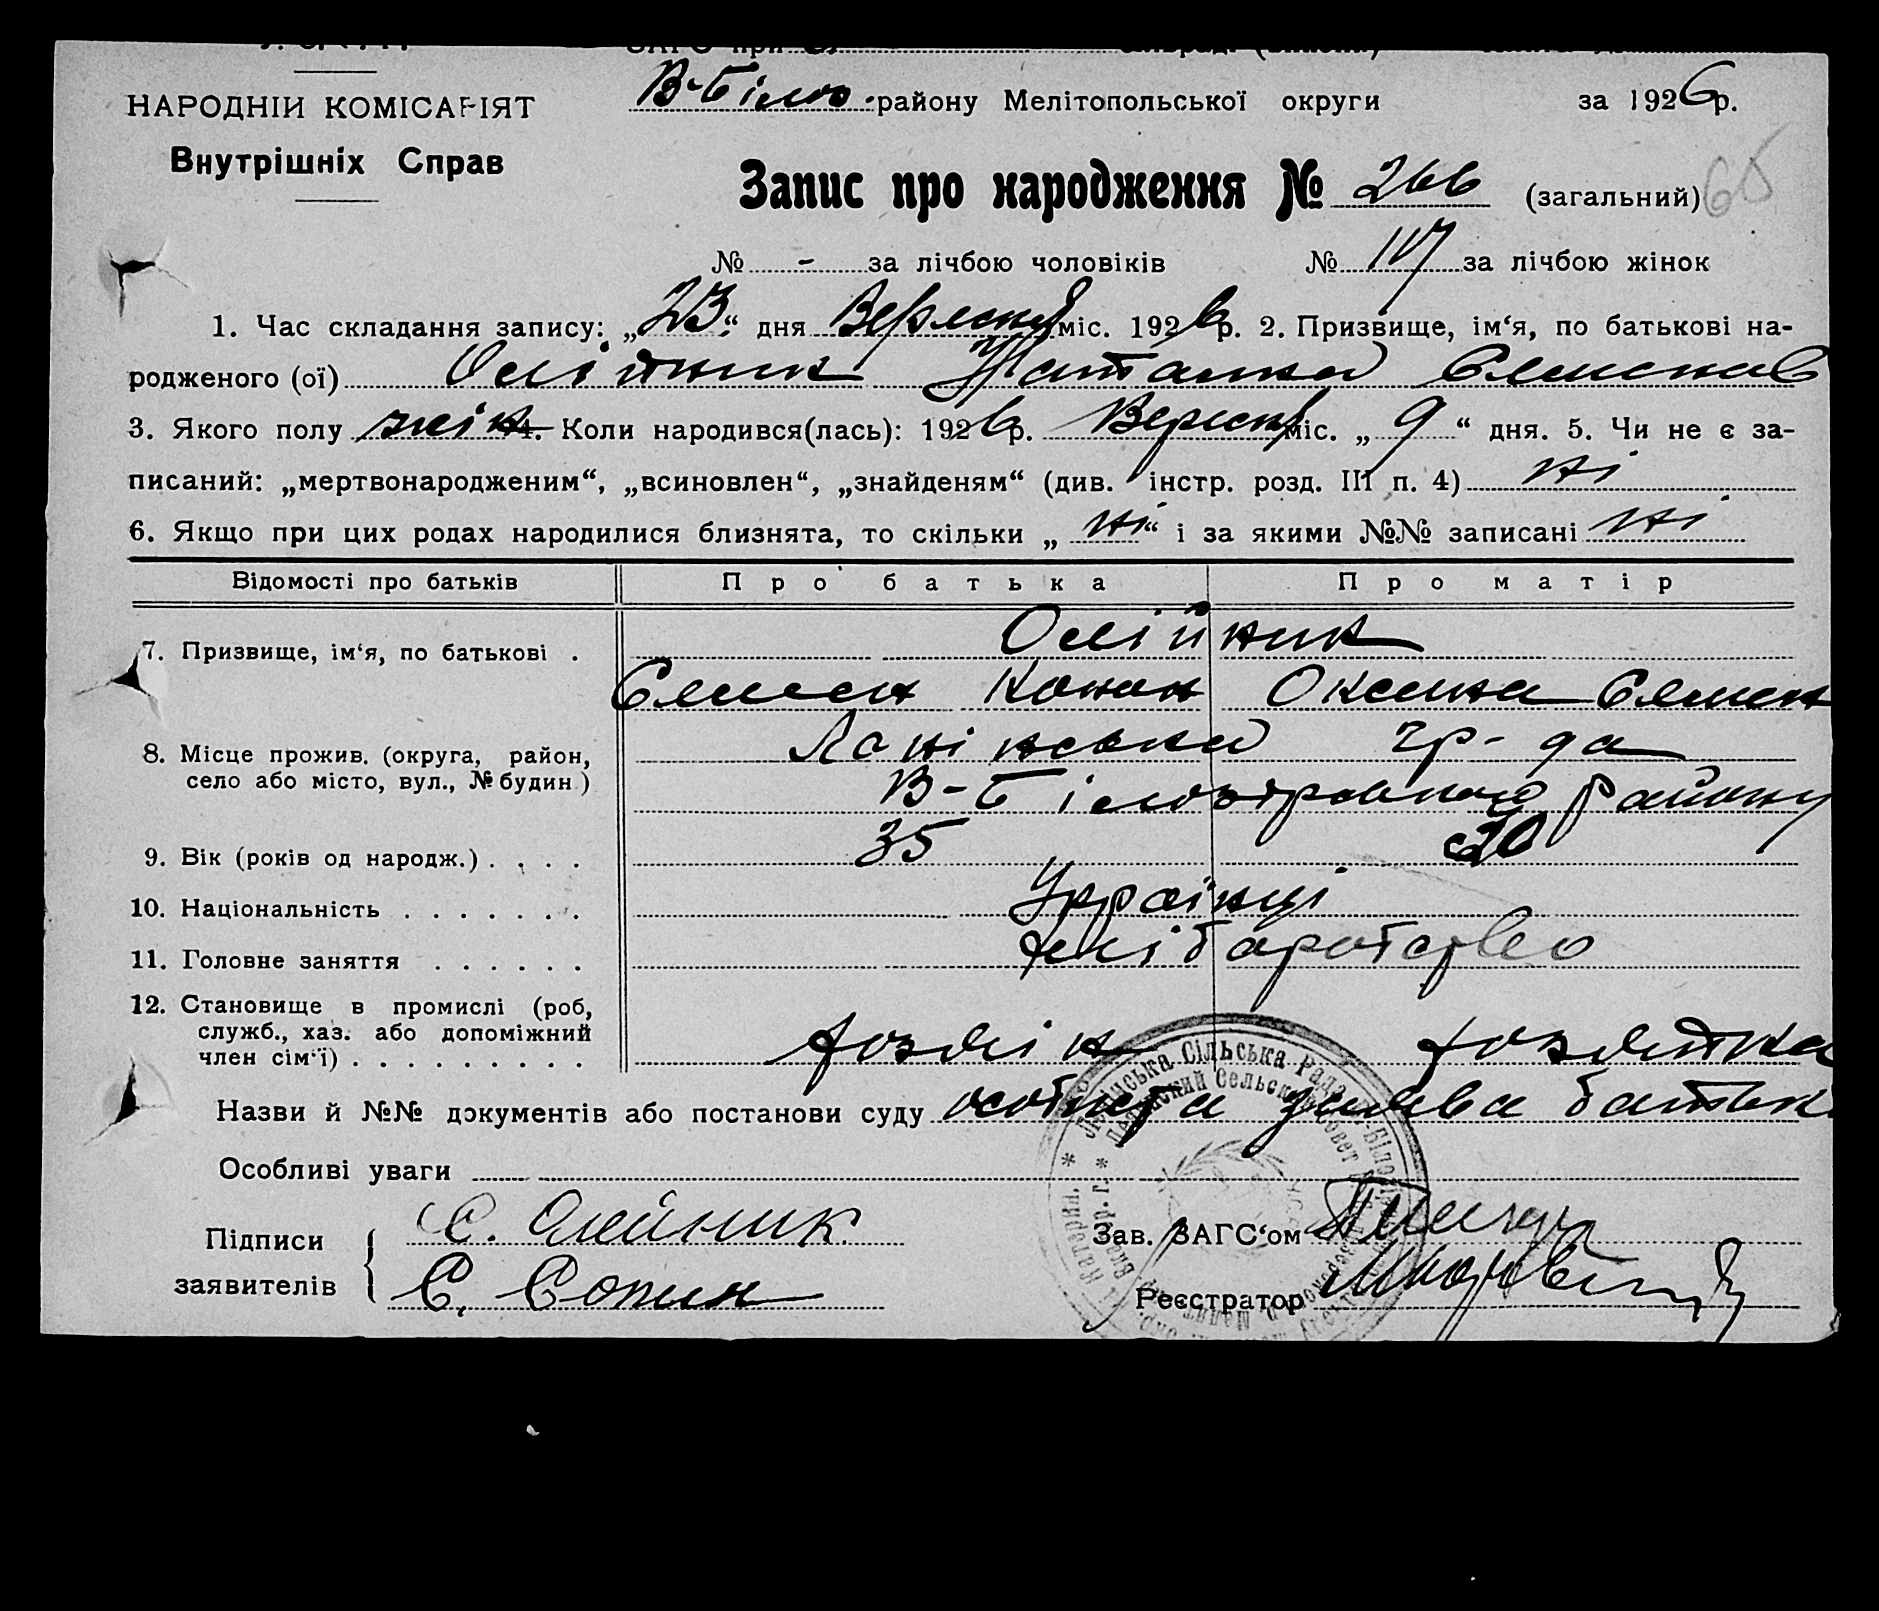 НАРОДНІЙ КОМІСАРІЯТ
Внутрішніх Справ
В-Біло району Мелітопольської округи за 1926 р.
Запис про народження № 266 (загальний) 65
№ - за лічбою чоловіків № 117 за лічбою жінок
1. Час складання запису: „23“ дня Вересня міс. 1926 р. 2. Призвище, ім‘я, по батькові на-
родженого (ої) Олійник Наталка
3. Якого полу жін 4. Коли народився(лась): 1926 р. Вересня міс. „9“ дня. 5. Чи не є за-
писаний: „мертвонародженим“, „всиновлен“, „знайденям“ (див. інстр. розд. III п. 4) ні
6. Якщо при цих родах народилися близнята, то скільки „ні“ і за якими №№ записані ні
Відомості про батьків Про батька Про матір
7. Призвище, ім‘я, по батькові . Олійник
Семен Конон Оксана Семен
8. Місце прожив. (округа, район, село або місто, вул., № будин.) Лонінська гр-да
В-Білозірського району
9. Вік (років од народж.) . . . . 35 20
10. Національність . . . . . . . Українці
11. Головне заняття . . . . . . хліборобство
12. Становище в промислі (роб, служб., хаз. або допоміжний член сім‘ї) . . . . . . . . . хозяїн хозяйка
Назви й №№ документів або постанови суду особиста заява батька
Особливі уваги
Підписи заявителів С. Олейник
С. Сопин
Зав. ЗАГС‘ом
Реєстратор